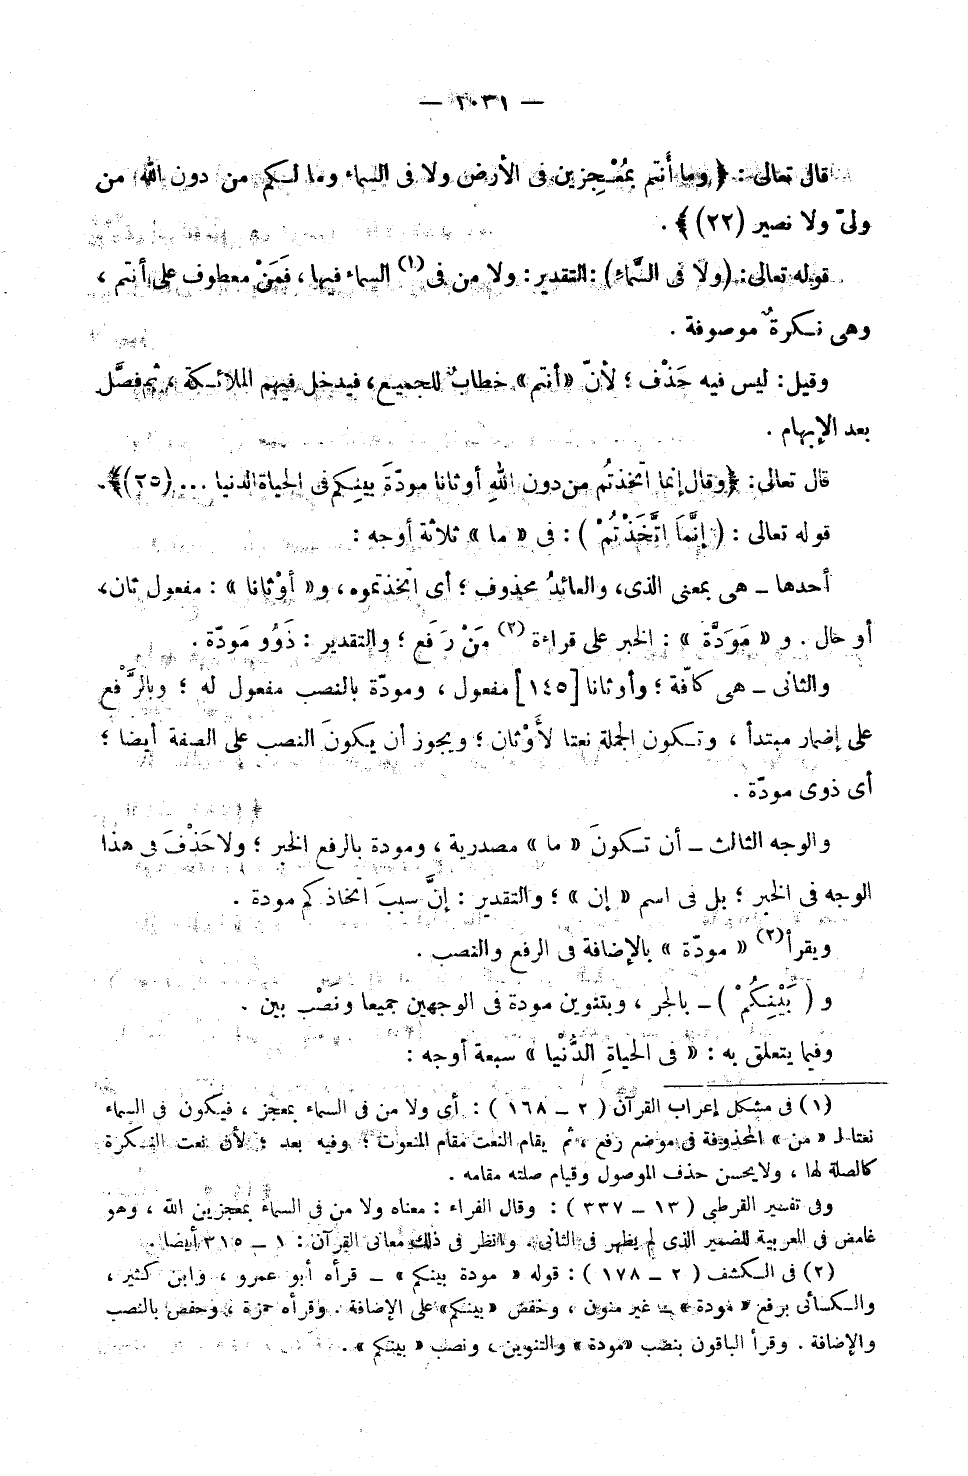 — ١٠٣١ —
قال تعالى : ﴿ وما أَنتم بمُعْجِزين فى الأرض ولا فى السماء وما لكم من دون الله من
ولىّ ولا نصير (٢٢) ﴾ .
قوله تعالى: (ولا فى السَّماءِ) : التقدير : ولا من فى (١) السماء فيها ، فَمَنْ معطوف على أنتم ،
وهى نكرةٌ موصوفة .
وقيل : ليس فيه حَذْف ؛ لأنّ «أنتم» خطابٌ للجميع، فيدخل فيهم الملائكة ، ثم فصَّل
بعد الإبهام .
قال تعالى : ﴿ وقال إنما اتخذتُم من دون اللهِ أوثانا مودّةَ بينِكم فى الحياة الدنيا ... (٢٥) ﴾ .
قوله تعالى : ( إِنَّمَا اتَّخَذْتُمْ ) : فى « ما » ثلاثة أوجه :
أحدها ــ هى بمعنى الذى، والعائدُ محذوف ؛ أى اتخذتموه ، و« أوْثانا » : مفعول ثان،
أو حال . و « مَوَدَّة » : الخبر على قراءة (٢) مَنْ رَفع ؛ والتقدير : ذَوُو مَودّة .
والثانى ــ هى كافّة ؛ وأوثانا [١٤٥] مفعول ، ومودّة بالنصب مفعول له ؛ وبالرَّفع
على إضمار مبتدأ ، وتكون الجملة نعتا لأَوْثان ؛ ويجوز أن يكونَ النصب على الصفة أيضا ؛
أى ذوى مودّة .
والوجه الثالث ــ أن تكونَ « ما » مصدرية ، ومودة بالرفع الخبر ؛ ولا حَذْفَ فى هذا
الوجه فى الخبر ؛ بل فى اسم « إن » ؛ والتقدير : إنَّ سببَ اتخاذكم مودة .
ويقرأ (٢) « مودّة » بالإضافة فى الرفع والنصب .
و ( بَيْنِكُمْ ) ــ بالجر ، وبتنوين مودة فى الوجهين جميعا ونَصْب بين .
وفيما يتعلق به : « فى الحياةِ الدُّنْيا » سبعة أوجه :
(١) فى مشكل إعراب القرآن ( ٢ ــ ١٦٨ ) : أى ولا من فى السماء بمعجز ، فيكون فى السماء
نعتا لـ « من » المحذوفة فى موضع رفع ، ثم يقام النعت مقام المنعوت ؛ وفيه بعد ؛ لأن نعت النكرة
كالصلة لها ، ولا يحسن حذف الموصول وقيام صلته مقامه .
وفى تفسير القرطبى ( ١٣ ــ ٣٣٧ ) : وقال الفراء : معناه ولا من فى السماء بمعجزين الله ، وهو
غامض فى العربية للضمير الذى لم يظهر فى الثانى . وانظر فى ذلك معانى القرآن : ١ ــ ٣١٥ أيضا .
(٢) فى الكشف ( ٢ ــ ١٧٨ ) : قوله « مودة بينكم » ــ قرأه أبو عمرو ، وابن كثير ،
والكسائى برفع « مودة » ــ غير منون ، وخفض «بينكم» على الإضافة . وقرأه حمزة ، وحفص بالنصب
والإضافة . وقرأ الباقون بنصب «مودة» والتنوين ، ونصب « بينكم » .